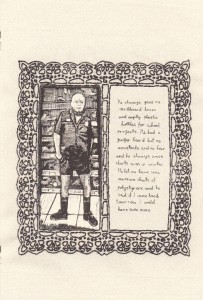 He always gave me
cardboard boxes
and empty plastic
bottles for school
projects. He had a
proper beard but no
moustache and no hair
and he always wore
shorts even in winter.
He let me have some
massive sheets of
polystyrene and he
said if I came back
tomorrow I could
have some more